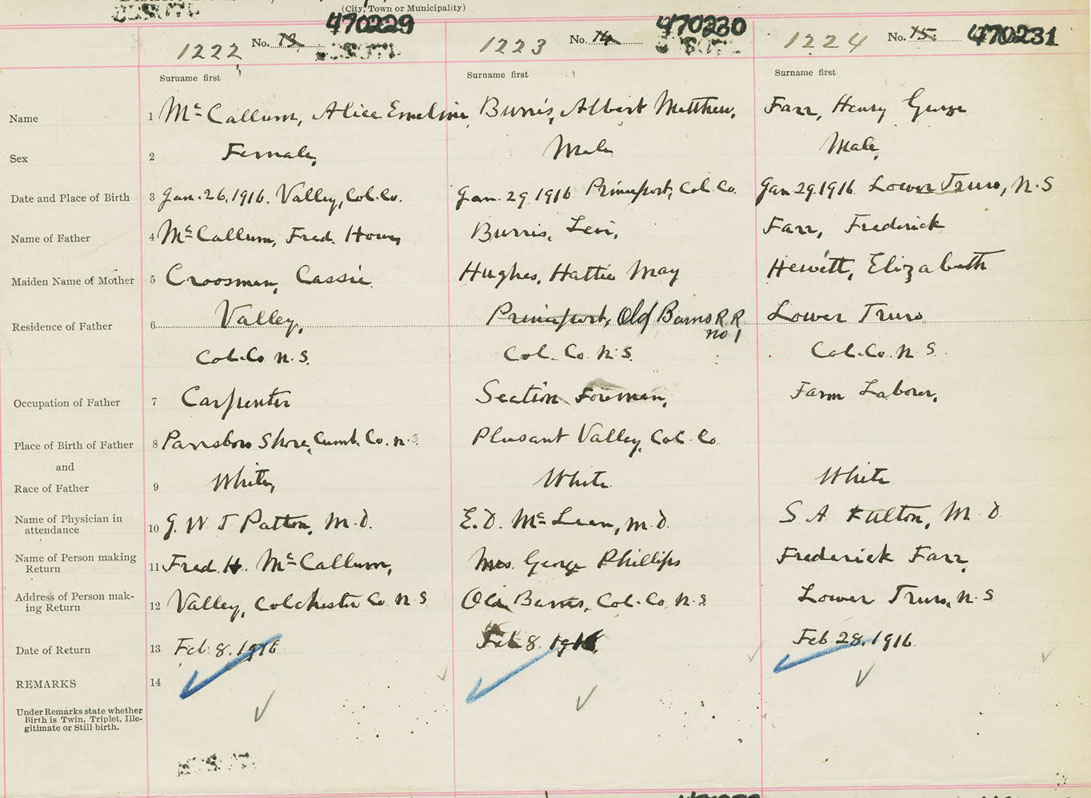 (City, Town or Municipality)
1222 No. 13 470229
1223 No. 14 470230
1224 No. 15 470231
Surname first Surname first Surname first
Name 1 McCallum, Alice Emeline Burris, Albert Matthew, Farr, Henry George
Sex 2 Female, Male Male,
Date and Place of Birth 3 Jan. 26, 1916. Valley, Col. Co. Jan. 29, 1916 Princeport, Col. Co. Jan 29, 1916 Lower Truro, N.S
Name of Father 4 McCallum, Fred. Burris, Levi, Farr, Frederick
Maiden Name of Mother 5 Crossman, Cassie Hughes, Hattie May Hewitt, Elizabeth
Residence of Father 6 Valley, Princeport, Old Barns R.R Lower Truro
no 1
Col. Co N.S. Col. Co. N.S. Col. Co. N.S.
Occupation of Father 7 Carpenter Section Foreman, Farm Laborer,
Place of Birth of Father 8 Parrsboro Shore, Cumb. Co. N.S. Pleasant Valley, Col. Co
and
Race of Father 9 White, White White
Name of Physician in
attendance 10 G. W T Patton, M.D. E.D. McLean, M.D. S A Fulton, M.D
Name of Person making
Return 11 Fred. H. McCallum, Mrs. George Phillips Frederick Farr,
Address of Person mak-
ing Return 12 Valley, Colchester Co N.S Old Barns, Col. Co N.S Lower Truro, N.S
Date of Return 13 Feb 8, 1916 Feb 8, 1916 Feb 28, 1916
REMARKS 14
Under Remarks state whether
Birth is Twin, Triplet, Ille-
gitimate or Still birth.